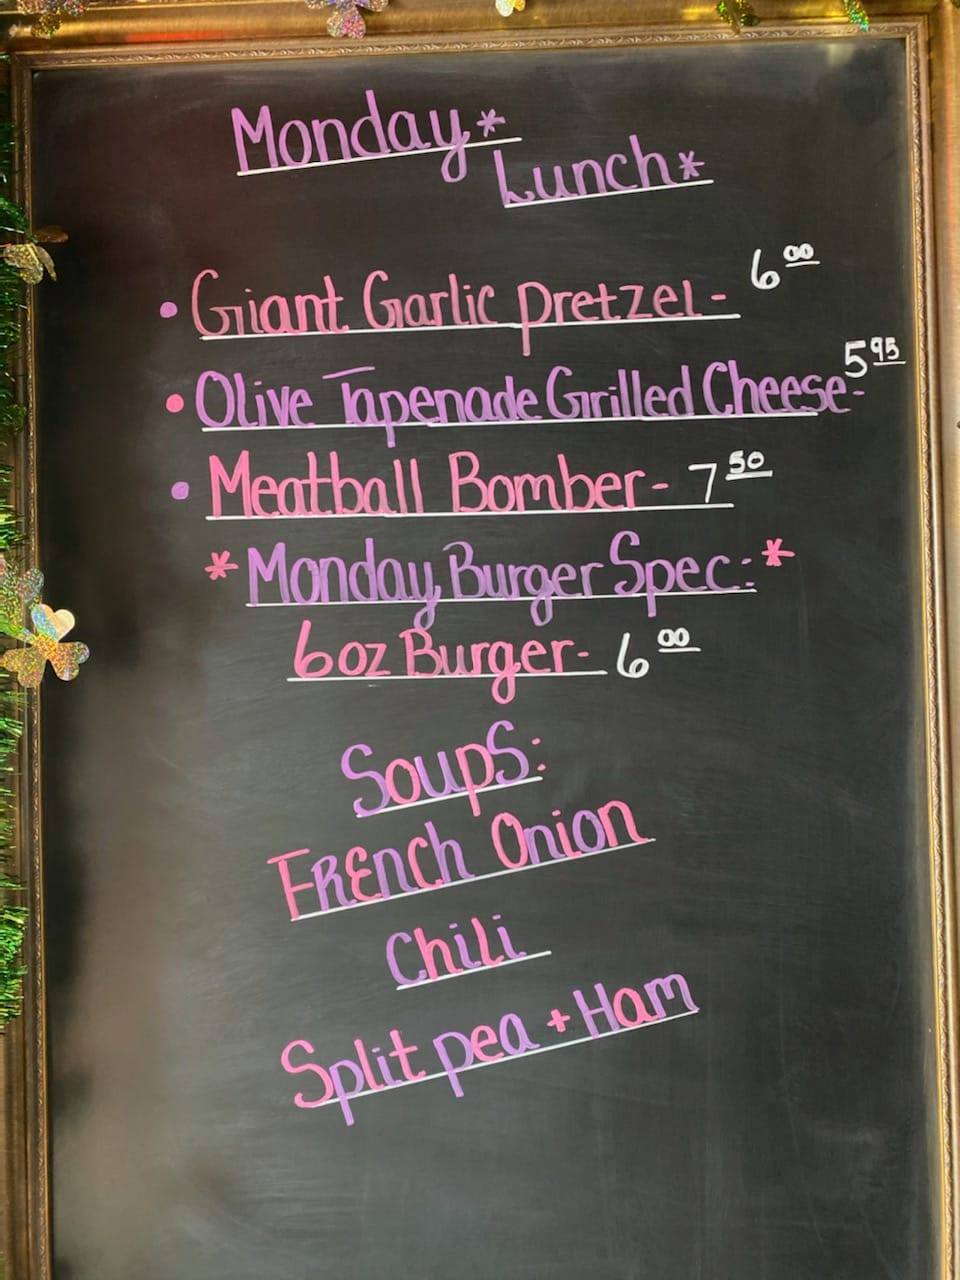 Monday*
Lunch*
• Giant Garlic pretzel - 6 00
• Olive Tapenade Grilled Cheese - 5 95
• Meatball Bomber - 7 50
* Monday Burger Spec: *
6oz Burger - 6 00
Soups:
French Onion
Chili
Split pea + Ham